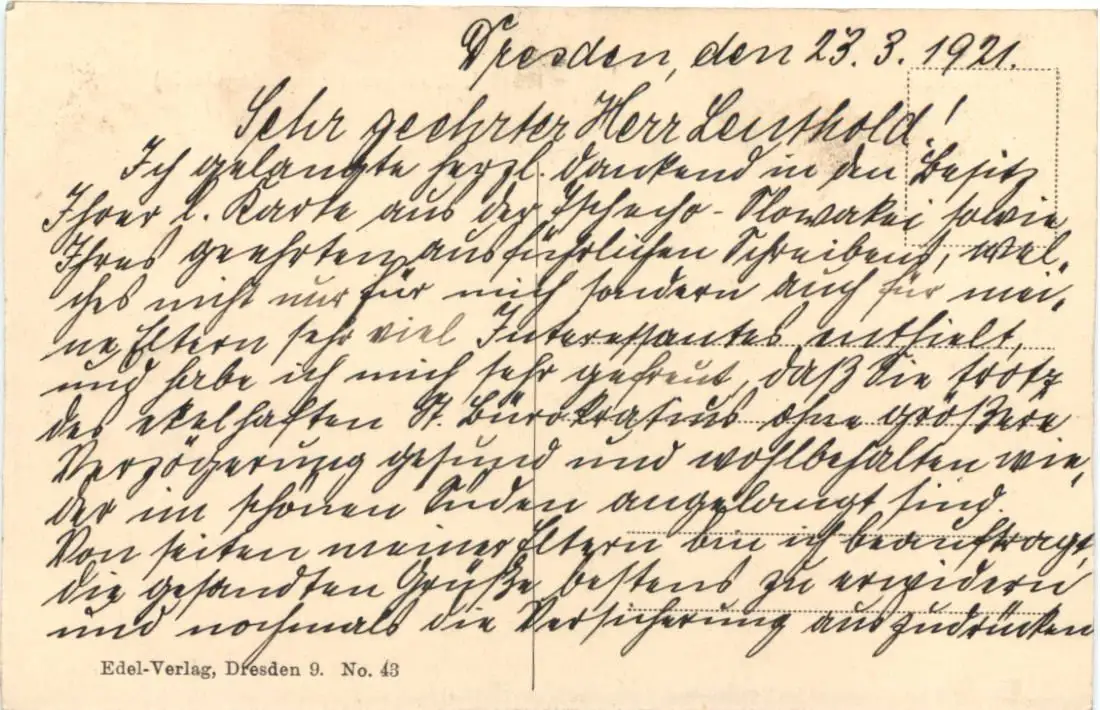 Dresden, den 23.3.1921.
Sehr geehrter Herr Leuthold!
Ich gelangte herzl. dankend in den Besitz
Ihrer l. Karte aus der Tschecho-Slowakei sowie
Ihres geehrten ausführlichen Schreibens, wel-
ches nicht nur für mich sondern auch für mei-
ne Eltern sehr viel Interessantes enthielt,
und habe ich mich sehr gefreut, daß Sie trotz
des ekelhaften St. Bürokratius ohne größere
Verzögerung gesund und wohlbehalten wie-
der im schönen Süden angelangt sind.
Von seiten meiner Eltern bin ich beauftragt,
die gesandten Grüße bestens zu erwidern
und nochmals die Versicherung auszudrücken
Edel-Verlag, Dresden 9. No. 43